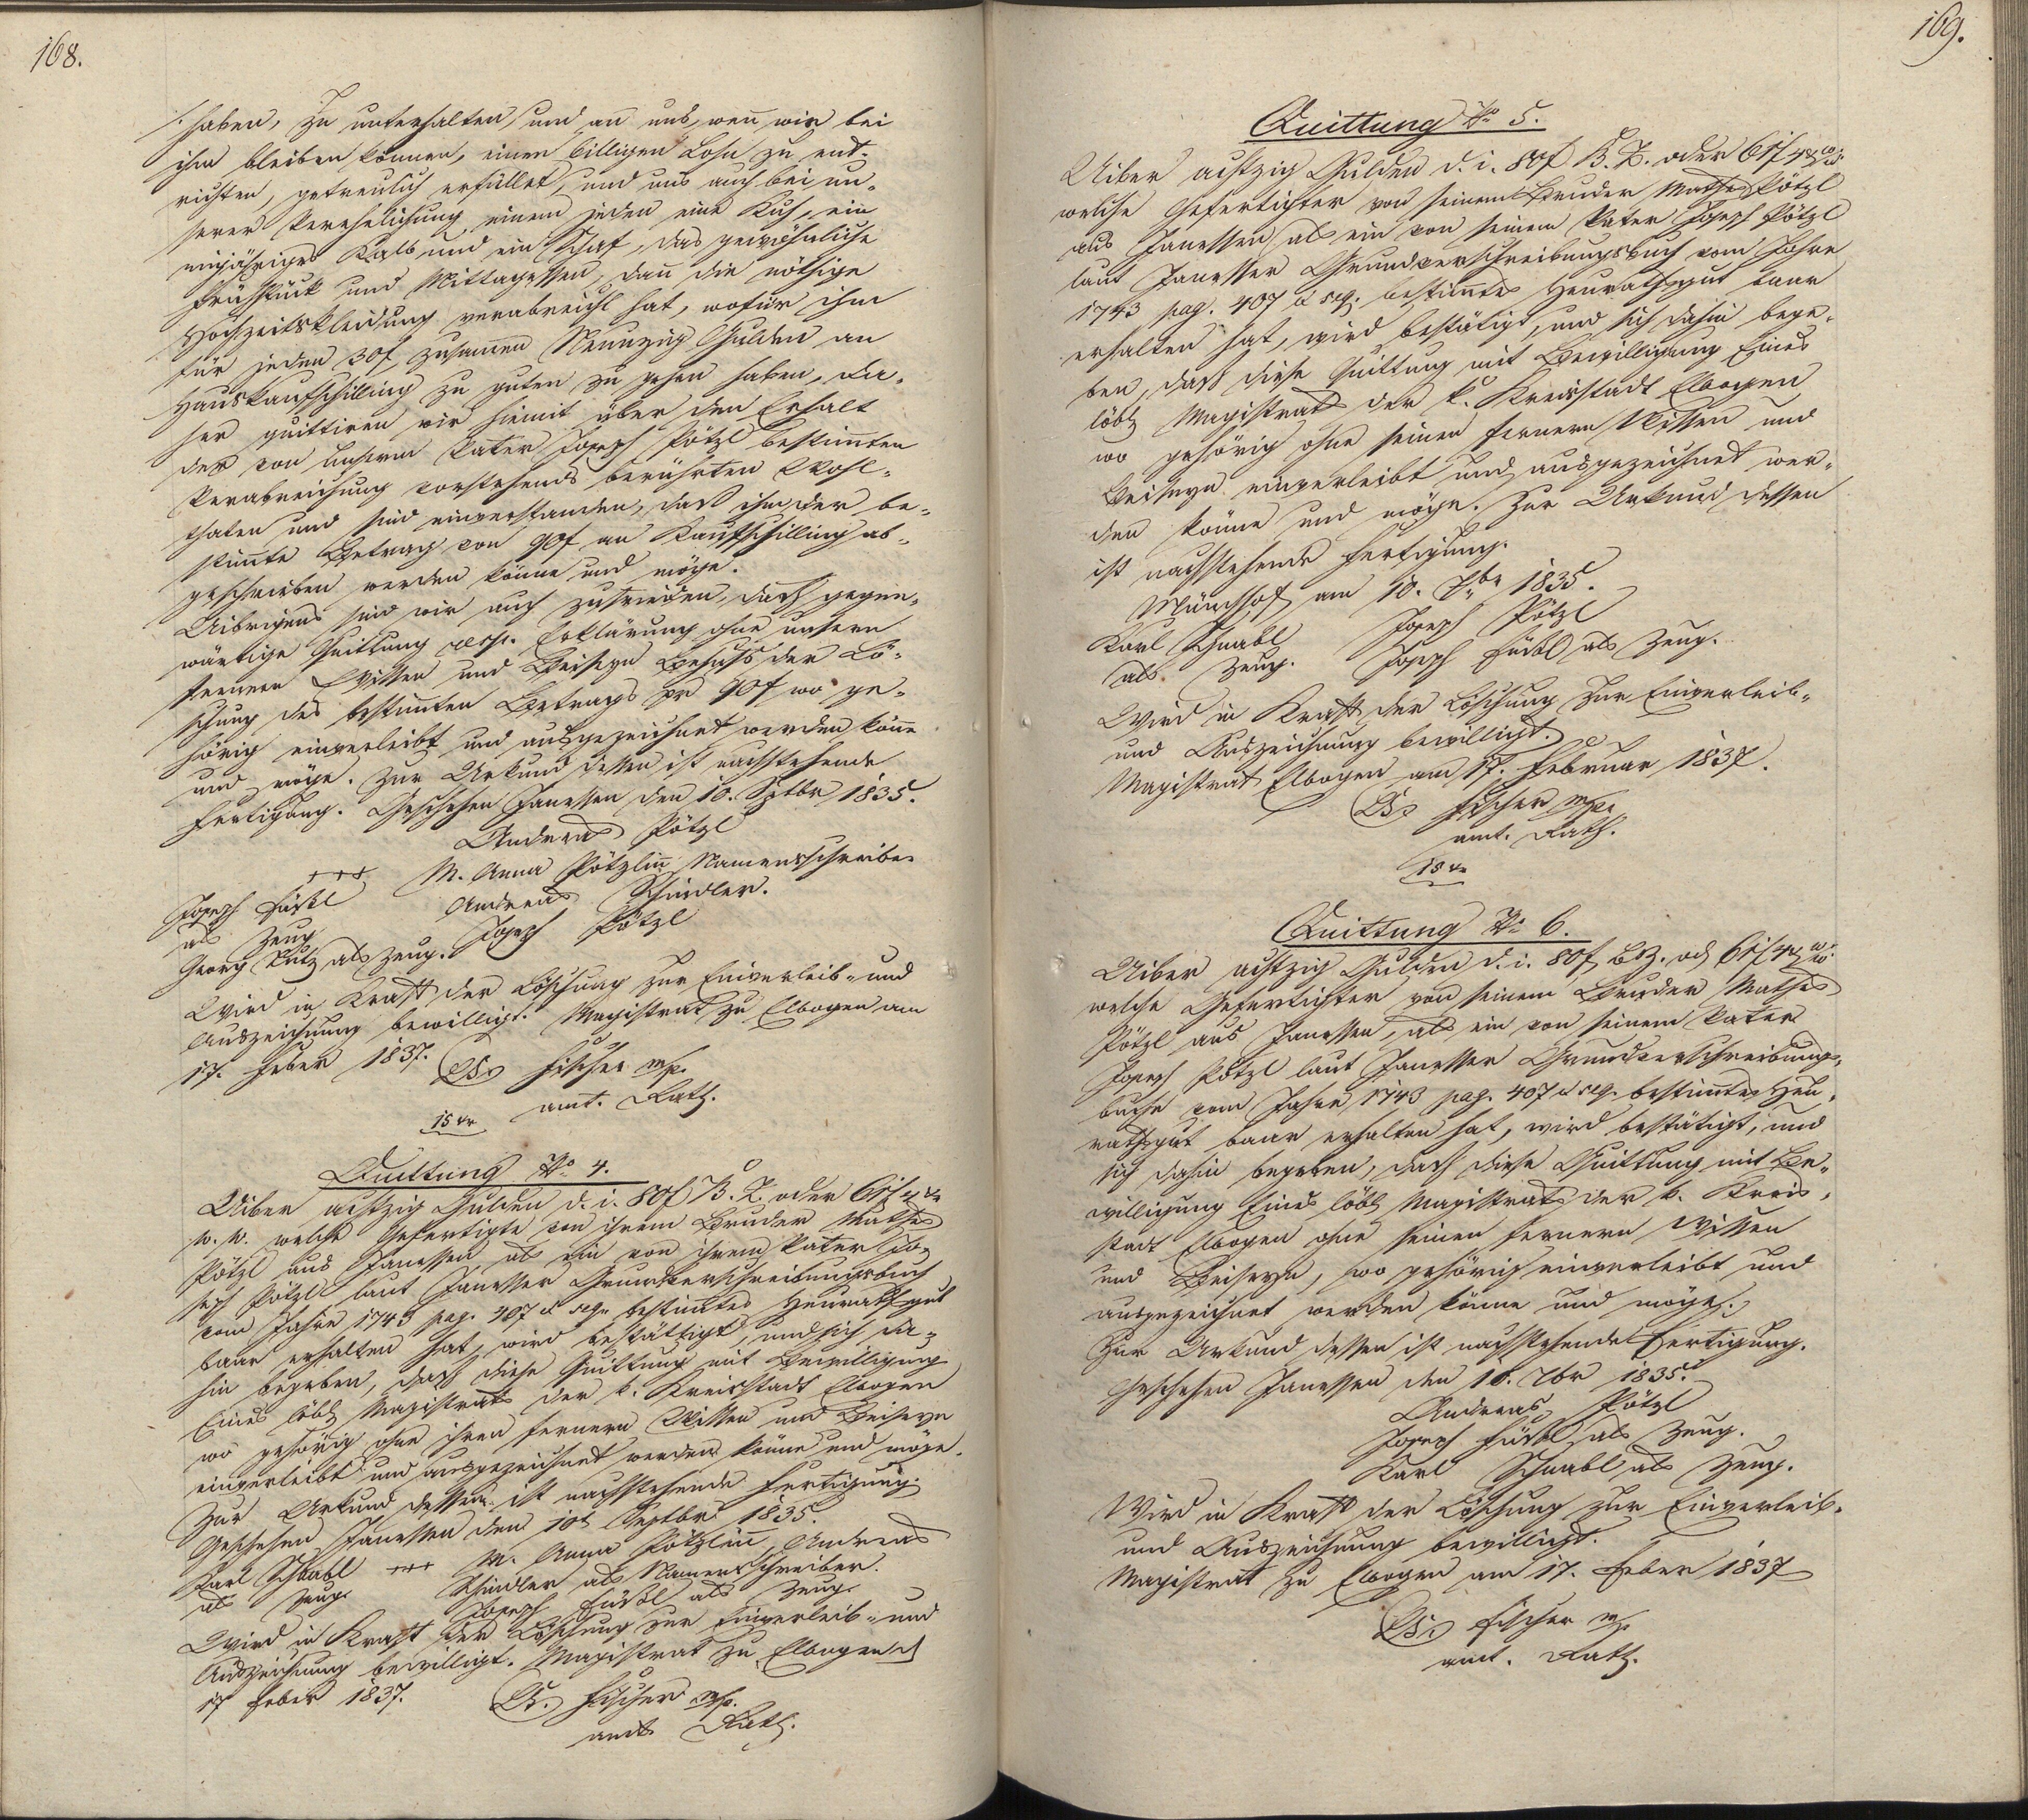 168.
/: haben, zu unterhalten, und an uns, wenn wir bei
ihm bleiben können, einen billigen Lohn zu ent-
richten, getreulich erfüllet, und uns auch bei un-
serer Verehelichung einem jeden eine Kuh, ein
einjähriges Kalb und ein Schaf, das gewöhnliche
Frühstück und Mittagessen, dann die nöthige
Hochzeitskleidung verabreicht hat, wofür ihm
für jeden 30f zusammen Neunzig Gulden an
Hauskaufschilling zu guten zu gehen haben, da-
her quittiren wir hiemit über den Erhalt
der von unserm Vater Joseph Pötzl bestimten
Verabreichung vorstehends berührten Wohl-
thaten und sind einverstanden, daß ihm der be-
stimte Betrag von 90f an Kaufschilling ab-
geschrieben werden könne und möge.
Uibrigens sind wir auch zufrieden, daß gegen-
wärtige Quittung resp. Erklärung ohne unsern
fernern Wissen und Beiseyn Behufs der Lö-
schung des bestimten Betrags pr 90f wo ge-
hörig einverleibt und ausgezeichnet werden könne
und möge. Zur Urkund dessen ist nachstehende
Fertigung. Geschehen Janessen den 10. Sptbr 1835.
Andreas Pötzl
+++ M. Anna Pötzlin Namensschreiber
Joseph Füßl Andreas Schindler.
als Zeug Joseph Pötzl
Georg Lutz als Zeug.
Wird in Kraft der Löschung zur Einverleib- und
Auszeichnung bewilligt. Magistrat zu Elbogen am
17. Feber 1837. Fischer mp.
amt. Rath.
15 xr
Quittung No 4.
Uiber achtzig Gulden d. i. 80f B. Z. oder 61f 4 xr
w. w. welche Gefertigte von ihrem Bruder Mathes
Pötzl aus Janessen, als ein von ihrem Vater Jo-
seph Pötzl laut Janesser Grundverschreibungsbuch
vom Jahre 1743 pag. 407 et seq. bestimtes Heurathsgut
baar erhalten hat, wird bestättigt, und sich da-
hin begeben, daß diese Quittung mit Bewilligung
Eines löbl Magistrats der k. Kreisstadt Elbogen
wo gehörig ohne ihren fernern Wissen und Beiseyn
einverleibt und ausgezeichnet werden könne und möge.
Zur Urkund dessen ist nachstehende Fertigung.
Geschehen Janessen den 10t Septbr 1835.
Karl Schnabl +++ M. Anna Pötzlin Andreas
als Zeug. Schindler als Namensschreiber.
Joseph Füßl als Zeug.
Wird in Kraft der Löschung zur Einverleib- und
Auszeichnung bewilligt. Magistrat zu Elbogen d
17 Feber 1837. Fischer mp.
amt. Rath.
169.
Quittung No 5.
Uiber achtzig Gulden d. i. 80f B. Z. oder 61f 4 xr w. w.
welche Gefertigter von seinem Bruder Mathes Pötzl
aus Janessen als ein von seinem Vater Joseph Pötzl
laut Janesser Grundverschreibungsbuch vom Jahre
1743 pag. 407 et seq. bestimtes Heurathsgut baar
erhalten hat, wird bestätigt, und sich dahin bege-
ben, daß diese Quittung mit Bewilligung Eines
löbl Magistrats der k. Kreisstadt Elbogen
wo gehörig ohne seinen fernern Wissen und
Beiseyn einverleibt und ausgezeichnet wer-
den könne und möge. Zur Urkund dessen
ist nachstehende Fertigung.
Münchhof am 10. 7br 1835.
Karl Schnabl Joseph Pötzl
als Zeug. Joseph Füßl als Zeug.
Wird in Kraft der Löschung zur Einverleib-
und Auszeichnung bewilligt.
Magistrat Elbogen am 17. Februar 1837.
Fischer mp.
amt. Rath.
15 xr
Quittung No 6.
Uiber achtzig Gulden d. i. 80f B. Z. od 61f 4 xr w. w.
welche Gefertigter von seinem Bruder Mathes
Pötzl aus Janessen, als ein von seinem Vater
Joseph Pötzl laut Janesser Grundverschreibungs-
buche vom Jahre 1743 pag. 407 et seq. bestimtes Heu-
rathsgut baar erhalten hat, wird bestätigt, und
sich dahin begeben, daß diese Quittung mit Be-
willigung Eines löbl Magistrats der k. Kreis-
stadt Elbogen ohne seinen fernern Wissen
und Beiseyn, wo gehörig einverleibt und
ausgezeichnet werden könne und möge.
Zur Urkund dessen ist nachstehende Fertigung.
Geschehen Janessen den 10. 7br 1835.
Andreas Pötzl
Joseph Füßl als Zeug.
Karl Schnabl als Zeug.
Wird in Kraft der Löschung zur Einverleib-
und Auszeichnung bewilligt.
Magistrat zu Elbogen am 17. Feber 1837
Fischer mp.
amt. Rath.